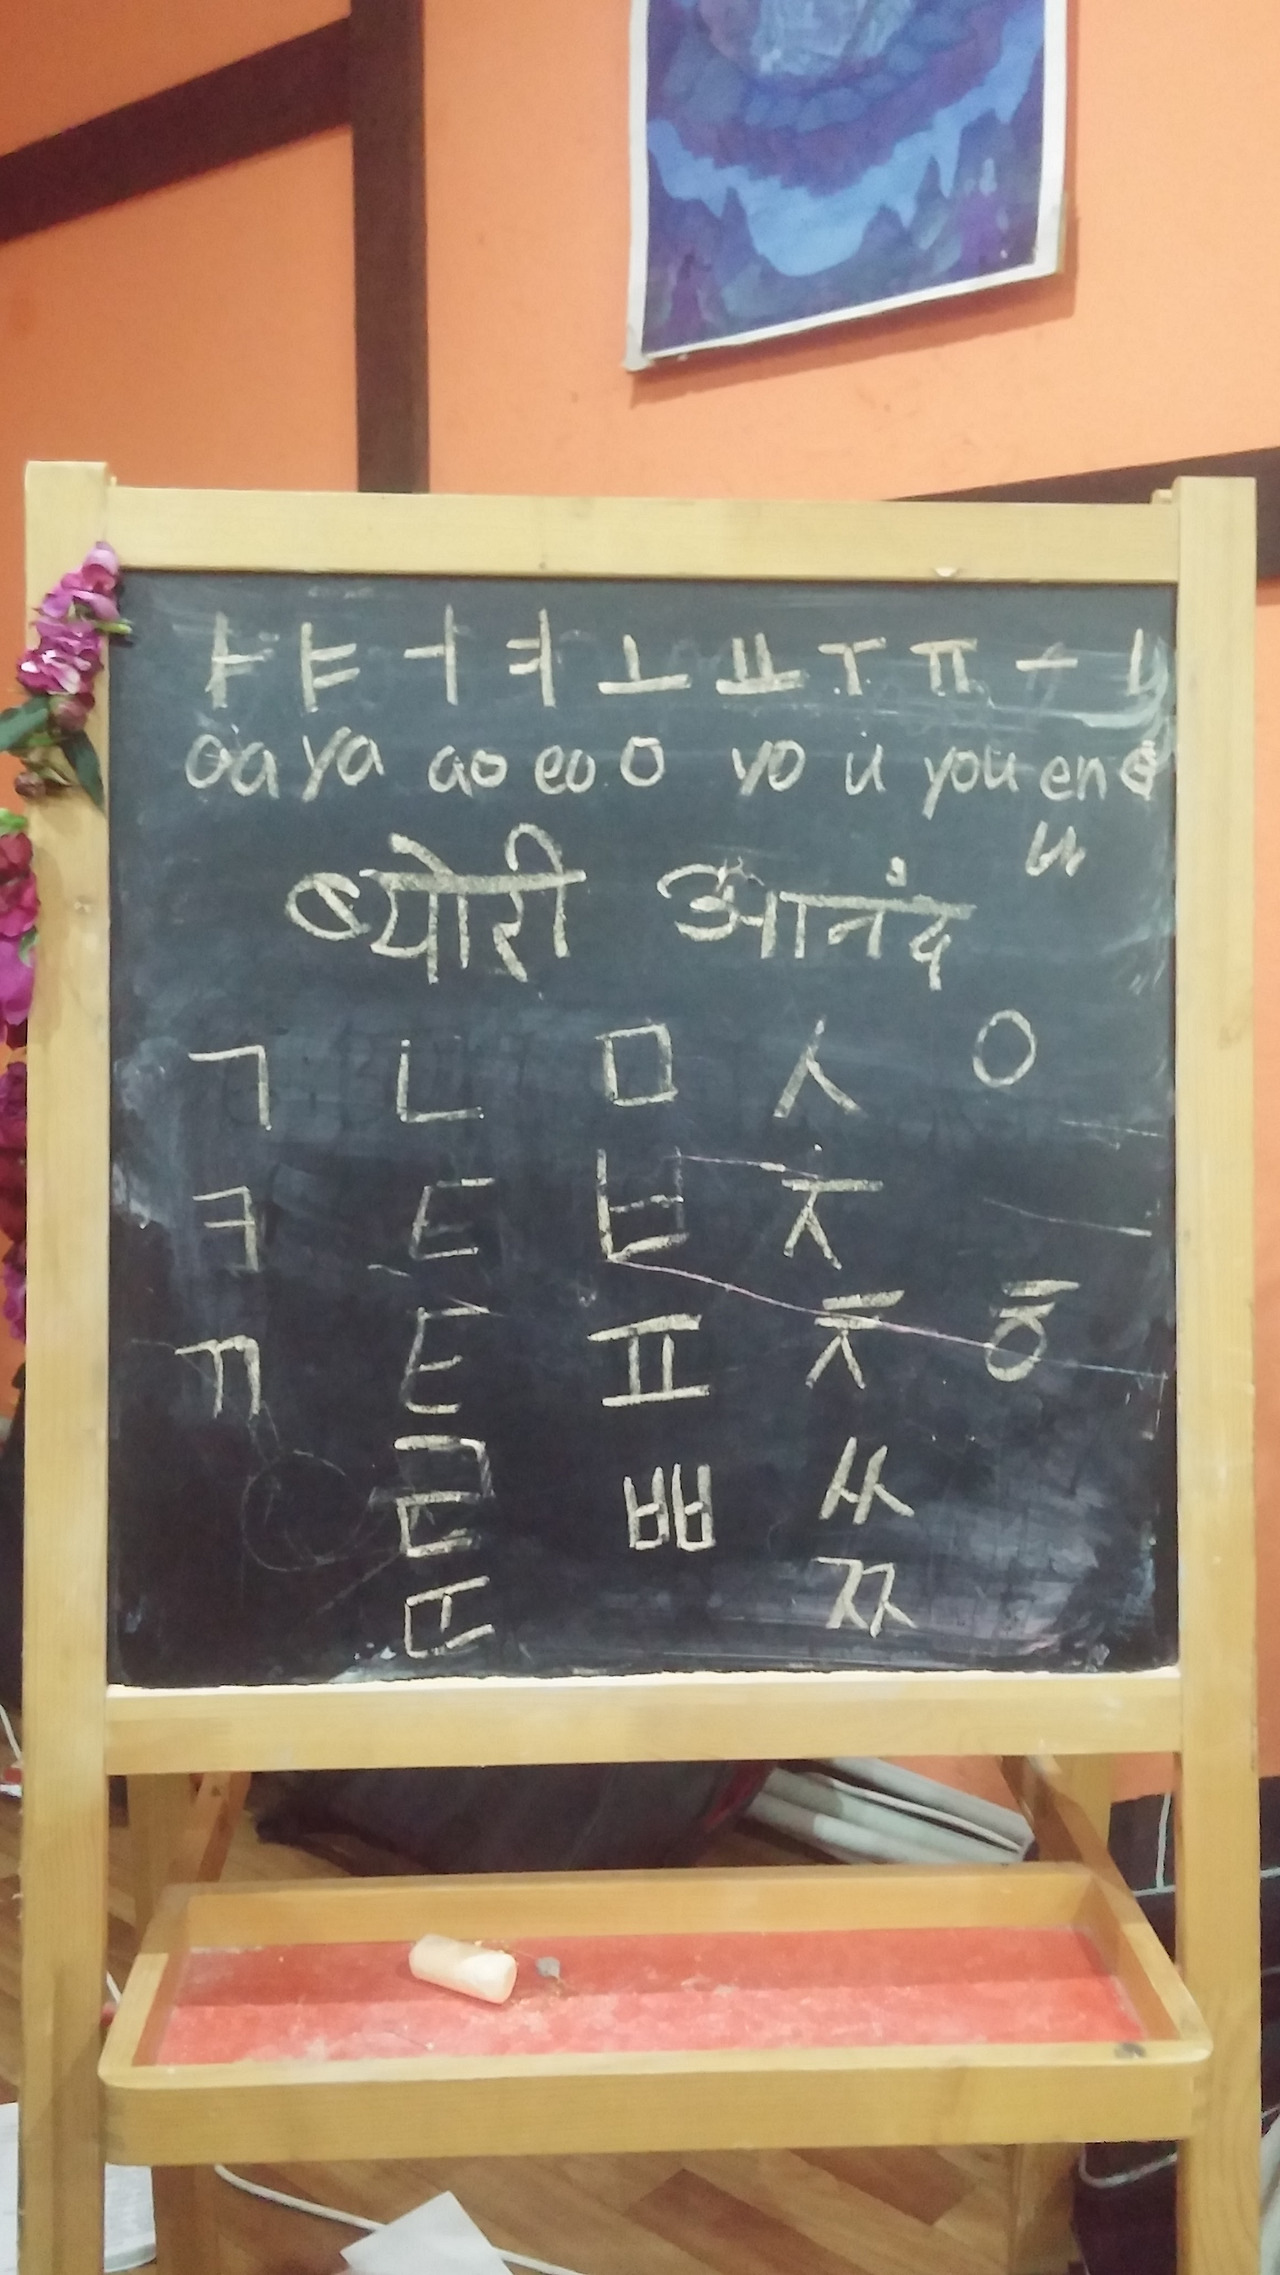 ㅏ ㅑ ㅓ ㅕ ㅗ ㅛ ㅜ ㅠ ㅡ ㅣ
aa ya ao eo o yo u you en e
u
ब्योरी आनंद
ㄱ ㄴ ㅁ ㅅ ㅇ
ㅋ ㄷ ㅂ ㅈ
ㄲ ㅌ ㅍ ㅊ ㅎ
ㄹ ㅃ ㅆ
ㄸ ㅉ